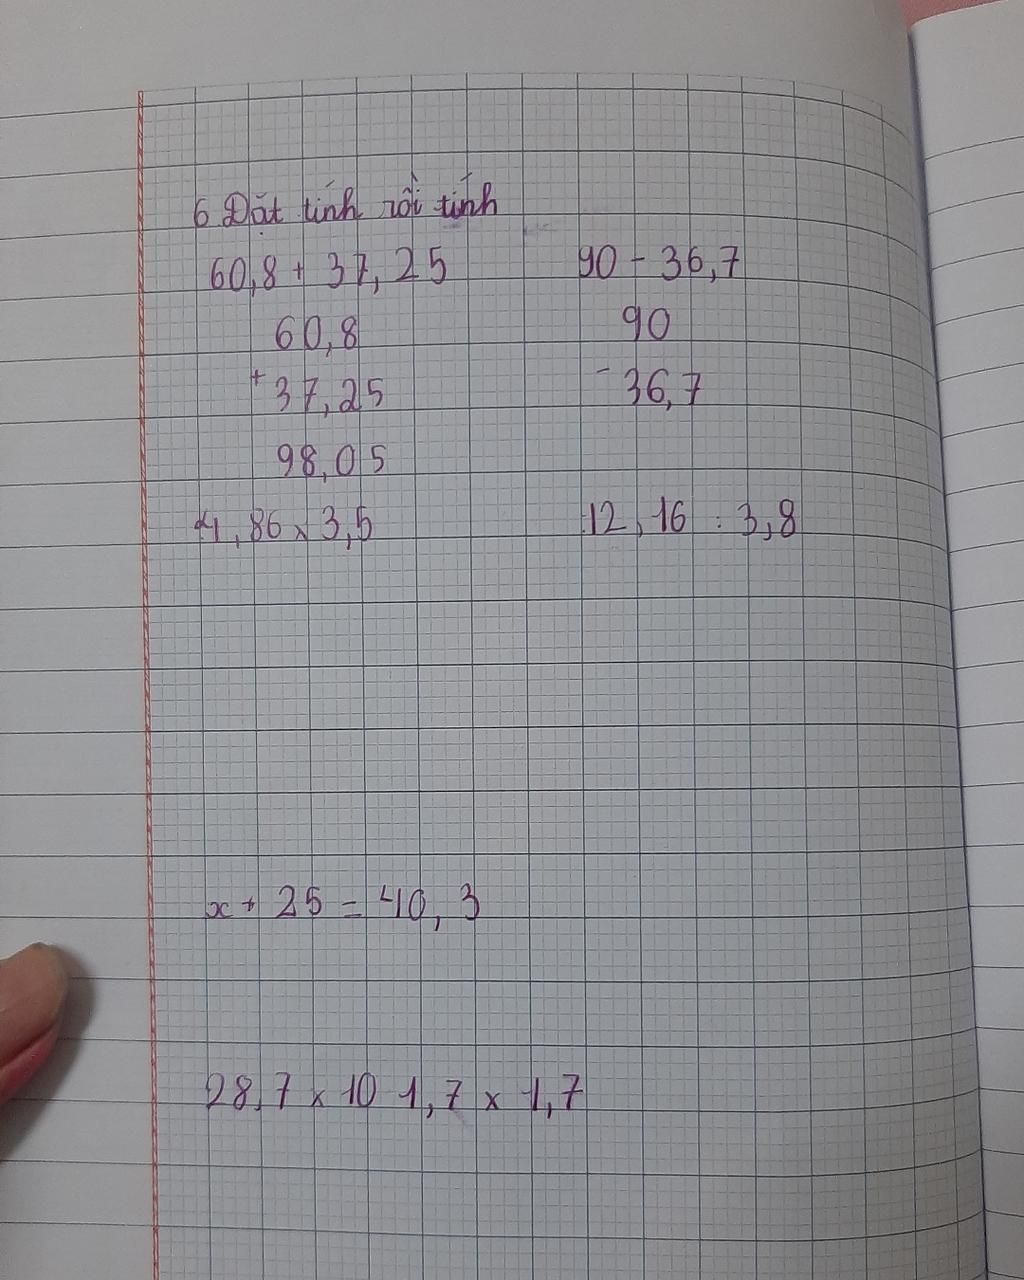 6 Đặt tính rồi tính
60,8 + 37,25
90 - 36,7
60,8
+ 37,25
98,05
90
- 36,7
4,86 x 3,5
12,16 : 3,8
x + 25 = 40,3
28,7 x 10 1,7 x 1,7